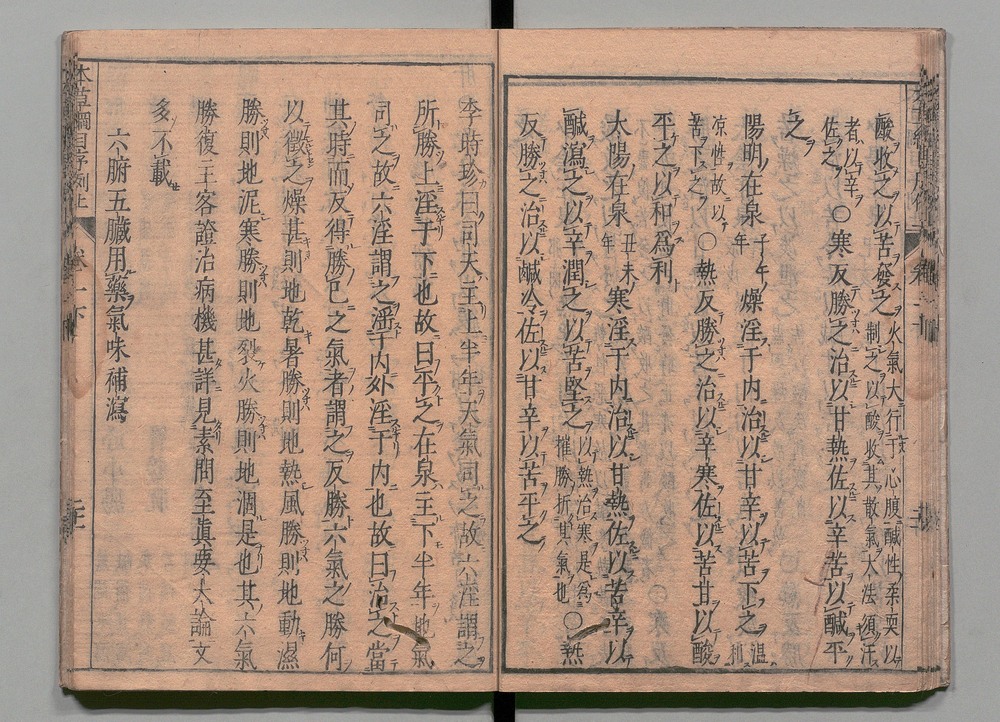 酸收之以苦發之火氣大行于心腹鹹性柔耎以制之以酸收其散氣大法須汗
者以辛佐之○寒反勝之治以甘熱佐以辛苦以鹹平
之
陽明在泉子午年燥淫于内治以甘辛以苦下之温利
凉性故以苦下之○熱反勝之治以辛寒佐以苦甘以酸
平之以和爲利
太陽在泉丑未年寒淫于内治以甘熱佐以苦辛以
鹹瀉之以辛潤之以苦堅之以熱治寒是爲摧勝折其氣也○熱
反勝之治以鹹冷佐以甘辛以苦平之
李時珍曰司天主上半年天氣司之故六淫謂之
所勝上淫于下也故曰平之在泉主下半年地氣
司之故六淫謂之淫于内外淫于内也故曰治之當
其時而反得勝己之氣者謂之反勝六氣之勝何
以徵之燥甚則地乾暑勝則地熱風勝則地動濕
勝則地泥寒勝則地裂火勝則地涸是也其六氣
勝復主客證治病機甚詳見素問至眞要大論文
多不載
六腑五臟用藥氣味補瀉
本草綱目序例上
卷一下